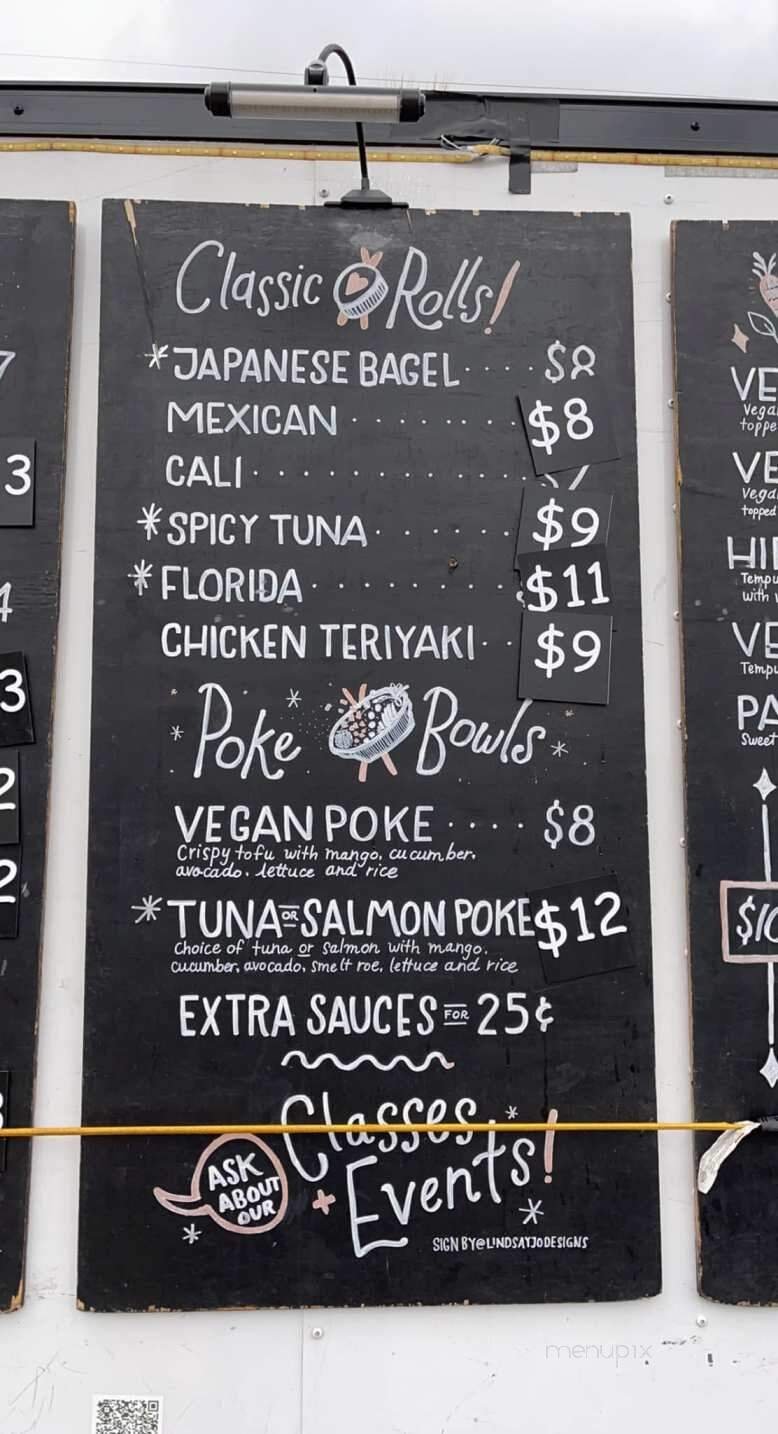 Classic Rolls!
*JAPANESE BAGEL ····· $8
MEXICAN ········ $8
CALI ············
*SPICY TUNA ······· $9
*FLORIDA ········· $11
CHICKEN TERIYAKI ·· $9
Poke Bowls
VEGAN POKE ···· $8
Crispy tofu with mango, cucumber,
avocado, lettuce and rice
*TUNA OR SALMON POKE $12
choice of tuna or salmon with mango,
cucumber, avocado, smelt roe, lettuce and rice
EXTRA SAUCES FOR 25¢
ASK ABOUT OUR
Classes
+ Events!
SIGN BY @LINDSAYJODESIGNS
3
4
3
2
2
Vega
toppe
Vega
topped
Tempu
with
Tempu
Sweet
menupix